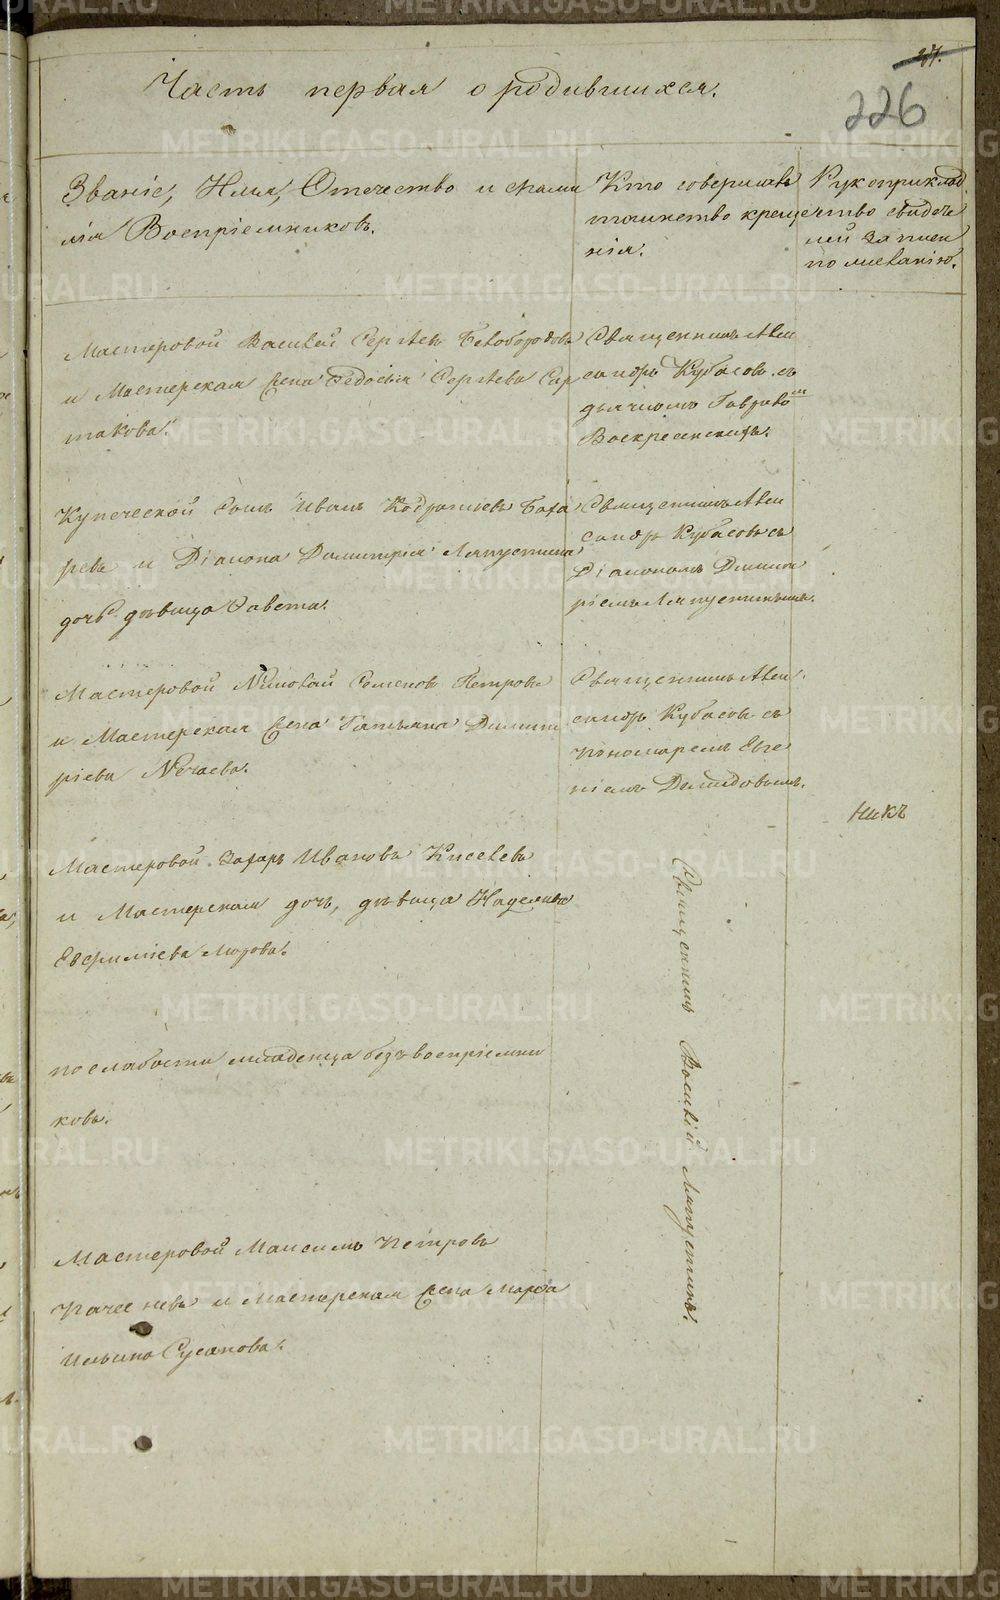 27.
226
Часть первая о родившихся.
Званіе, Имя, Отечество и фами
лія Воспріемниковъ.
Кто совершалъ
таинство креще
нія.
Рукоприклад
ство свидете
лей записи
по желанію.
Мастеровой Василей Сергѣевъ Белобородовъ
и Мастерская Жена Федосья Сергѣева Сар
такова.
Священникъ Алек
сандръ Кубасовъ съ
дьячкомъ Гаврило
Воскресенскимъ.
Купеческой Сынъ Иванъ Кодратьевъ Бага
ревъ и Діакона Димитрія Ляпустина
дочь дѣвица Завета.
Священникъ Алек
сандръ Кубасовъ съ
Діакономъ Димит
ріемъ Ляпустинымъ.
Мастеровой Николай Семеновъ Петровъ
и Мастерская Жена Татьяна Димит
ріева Нечаева.
Священникъ Алек
сандръ Кубасовъ съ
Пономаремъ Евге
ніемъ Демидовымъ.
Мастеровой Захаръ Ивановъ Киселевъ
и Мастерская дочь, дѣвица Надежда
Евфиміева Мизова.
по слабости младенца безъ воспріемни
ковъ.
Мастеровой Максимъ Петровъ
и Мастерская Жена Марфа
Ильина Сусанова.
Священникъ Василій Ляпустинъ.
METRIKI.GASO-URAL.RU